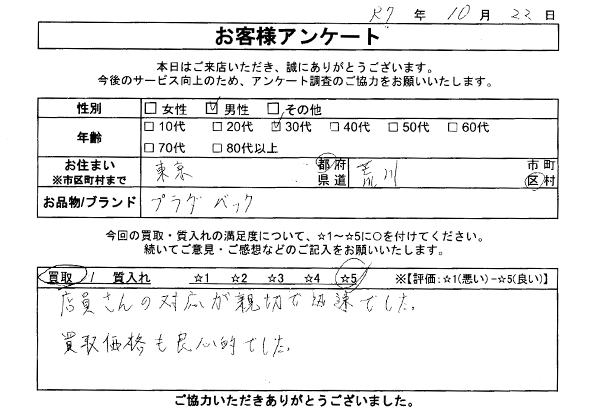 R7 年 10 月 22 日
お客様アンケート
本日はご来店いただき、誠にありがとうございます。
今後のサービス向上のため、アンケート調査のご協力をお願いいたします。
性別 □ 女性 ☑ 男性 □ その他
年齢 □ 10代 □ 20代 ☑ 30代 □ 40代 □ 50代 □ 60代
□ 70代 □ 80代以上
お住まい ※市区町村まで 東京 都府県道 荒川 市町区村
お品物/ブランド プラダ バック
今回の買取・質入れの満足度について、☆1～☆5に○を付けてください。
続いてご意見・ご感想などのご記入をお願いいたします。
買取 / 質入れ ☆1 ☆2 ☆3 ☆4 ☆5 ※【評価:☆1(悪い)－☆5(良い)】
店員さんの対応が親切で でした。
買取価格も良心的でした。
ご協力いただきありがとうございました。